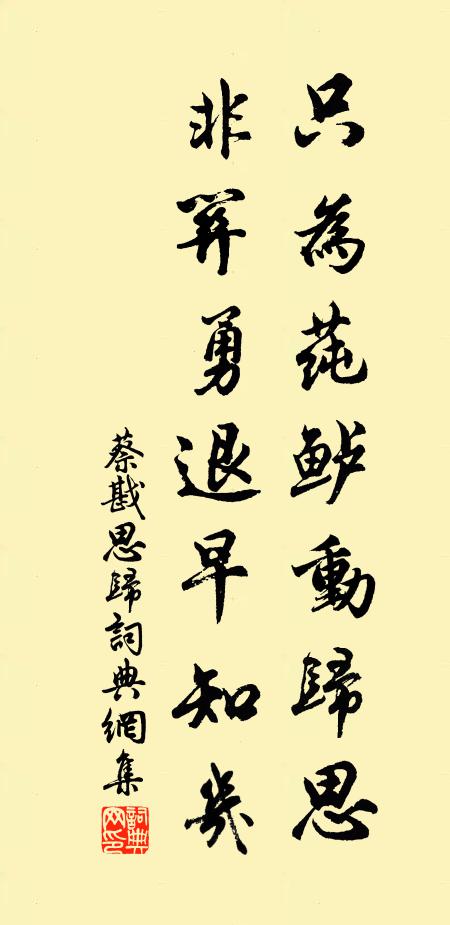 只為蒓鱸動歸思
非筭勇退早知幾
蔡戡思歸詞典網集
詞典網印